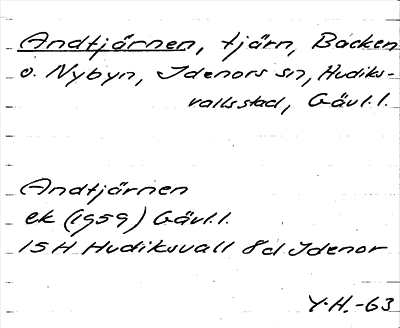 Andtjärnen, tjärn, Backen
o. Nybyn, Idenors sn, Hudiks-
vallsstad, Gävl.l.
Andtjärnen
ek (1959) Gävl.l.
15H Hudiksvall 8d Idenor
Y.H.-63